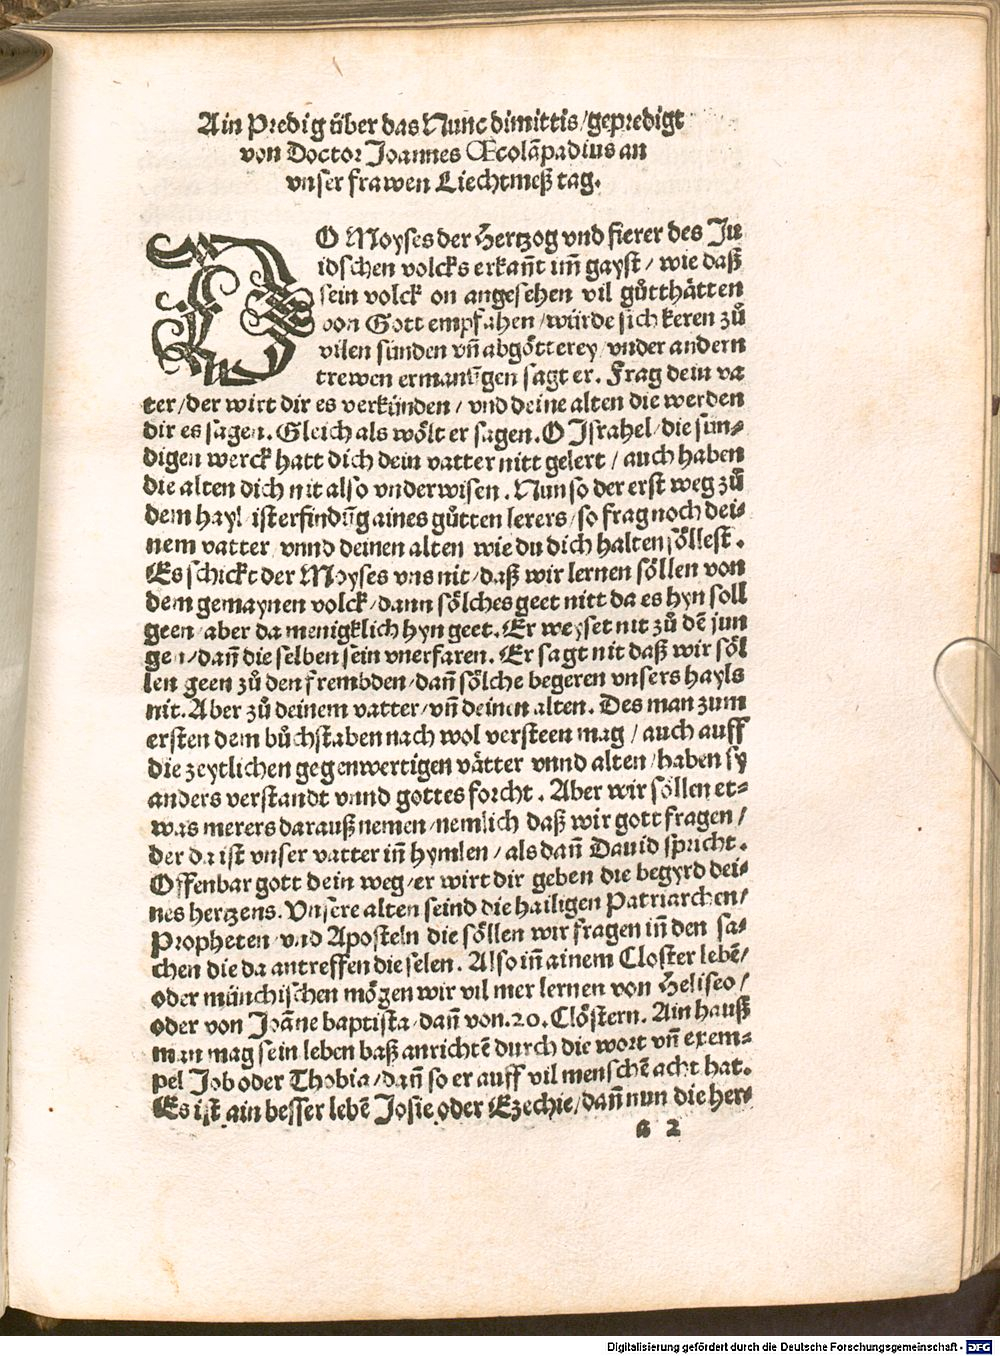 Ain Predig über das Nunc dimittis / gepredigt
von Doctor Joannes Œcolãpadius an
vnser frawen Liechtmeß tag.
DO Moyses der Hertzog vnd fierer des Ju
idschen volcks erkañt im̃ gayst / wie daß
sein volck on angesehen vil gůtthätten
von Gott empfahen / würde sich keren zů
vilen sünden vñ abgötterey / vnder andern
trewen ermanũgen sagt er. Frag dein va
ter / der wirt dir es verkünden / vnd deine alten die werden
dir es sagen. Gleich als wölt er sagen. O Israhel / die sün⸗
digen werck hatt dich dein vatter nitt gelert / auch haben
die alten dich nit also vnderwisen. Nun so der erst weg zů
dem hayl ist erfindũg aines gůtten lerers / so frag noch dei⸗
nem vatter vnnd deinen alten wie du dich halten söllest.
Es schickt der Moyses vns nit / daß wir lernen söllen von
dem gemaynen volck / dann sölches geet nitt da es hyn soll
geen / aber da menigklich hyn geet. Er weyset nit zů dẽ jun
gen / dañ die selben sein vnerfaren. Er sagt nit daß wir söl
len geen zů den frembden / dañ sölche begeren vnsers hayls
nit. Aber zů deinem vatter / vñ deinen alten. Des man zum
ersten dem bůchstaben nach wol versteen mag / auch auff
die zeytlichen gegenwertigen vätter vnnd alten / haben sy
anders verstandt vnnd gottes forcht. Aber wir söllen et⸗
was merers darauß nemen / nemlich daß wir gott fragen /
der da ist vnser vatter iñ hymlen / als dañ Dauid spricht.
Offenbar gott dein weg / er wirt dir geben die begyrd dei⸗
nes hertzens. Vnsere alten seind die hailigen Patriarchen /
Propheten vnd Aposteln die söllen wir fragen iñ den sa⸗
chen die da antreffen die selen. Also iñ ainem Closter lebẽ /
oder münchischen mögen wir vil mer lernen von Heliseo /
oder von Joãne baptista / dañ von .20. Clöstern. Ain hauß
man mag sein leben baß anrichtẽ durch die wort vñ exem⸗
pel Job oder Thobia / dañ so er auff vil menschẽ acht hat.
Es ist ain besser lebẽ Josie oder Ezechie / dañ nun die her⸗
a 2
Digitalisierung gefördert durch die Deutsche Forschungsgemeinschaft - DFG